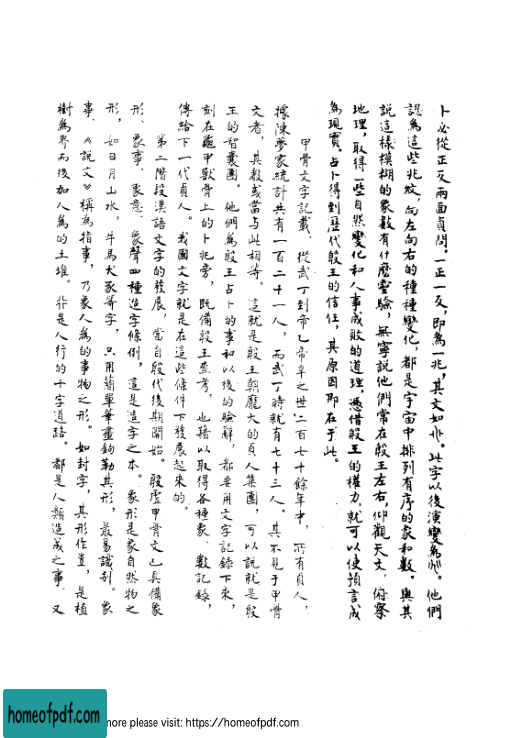 卜必從正反兩面貞問。一正一反，即為一兆，其文如
此字以後演變為
他們
認為這些兆紋，向左向右的種種變化，都是宇宙中排列有序的象和數。與其
說這樣模糊的象數有什麼靈驗，無寧說他們常在殷王左右，仰觀天文，俯察
地理，取得一些自然變化和人事成敗的道理，憑借殷王的權力，就可以使預言成
為現實。占卜得到歷代殷王的信任，其原因即在于此。
甲骨文字記載，從武丁到帝乙帝辛之世二百七十餘年中，所有貞人，
據陳夢家統計共有一百二十一人，而武丁時就有七十三人。其不見于甲骨
文者，其數或當與此相等。這就是殷王朝龐大的貞人集團，可以說就是殷
王的智囊團。他們為殷王占卜的事和以後的驗辭，都要用文字記錄下來，
刻在龜甲獸骨上的卜兆旁，既備殷王參考，也藉以取得各種象、數記錄，
傳給下一代貞人。我國文字就是在這些條件下發展起來的。
第二階段漢語文字的發展，當自殷代後期開始。殷虛甲骨文已具備象
形、象事、象意、象聲四種造字條例，這是造字之本。象形是象自然物之
形，如日月山水，牛馬犬豕等字，只用簡單筆畫鉤勒其形，最易識別。象
事，《說文》稱為指事，乃象人為的事物之形。如封字，其形作
，是植
樹為界而後加人為的土堆。
是人行的十字道路。都是人類造成之事。又
homeofpdf.com
more please visit: https://homeofpdf.com